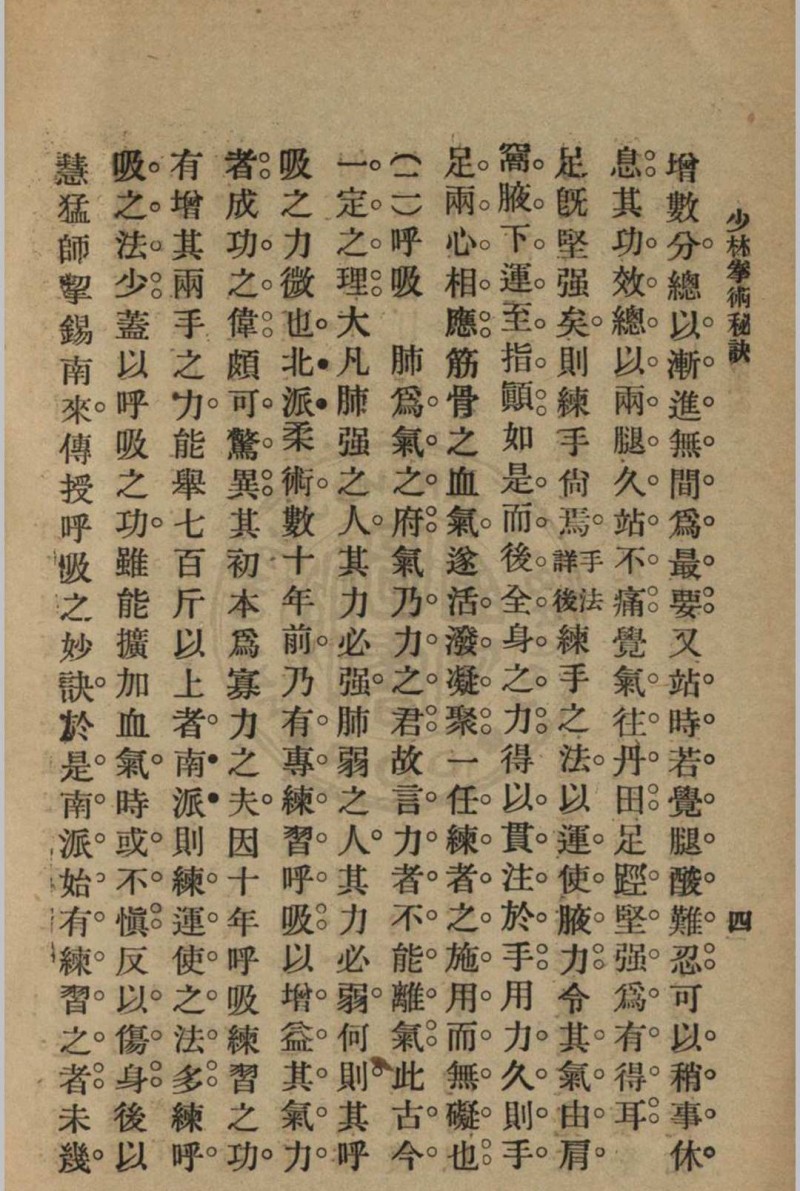 少林拳術秘訣　四
增數分。總以漸進。無間爲最要。又站時。若覺腿酸難忍。可以稍事休。
息。其功效。總以兩腿久站不痛。覺氣往丹田。足踁堅强。爲有得耳。
足旣堅强矣。則練手尙焉。手法詳後練手之法。以運使腋力。令其氣由肩。
窩腋下。運至指顚。如是而後全身之力。得以貫注於手。用力久則手。
足兩心相應。筋骨之血氣。遂活潑凝聚。一任練者之施用而無礙也。
（二）呼吸　肺爲氣之府。氣乃力之君。故言力者。不能離氣。此古今。
一定之理。大凡肺强之人。其力必强。肺弱之人。其力必弱。何則。其呼
吸之力微也。北派柔術。數十年前。乃有專練習呼吸。以增益其氣力。
者。成功之偉。頗可驚異。其初本爲寡力之夫。因十年呼吸練習之功。
有增其兩手之力。能舉七百斤以上者。南派則練運使之法多。練呼。
吸之法少。蓋以呼吸之功。雖能擴加血氣。時或不愼。反以傷身。後以
慧猛師挈錫南來。傳授呼吸之妙訣。於是南派。始有練習之者。未幾。